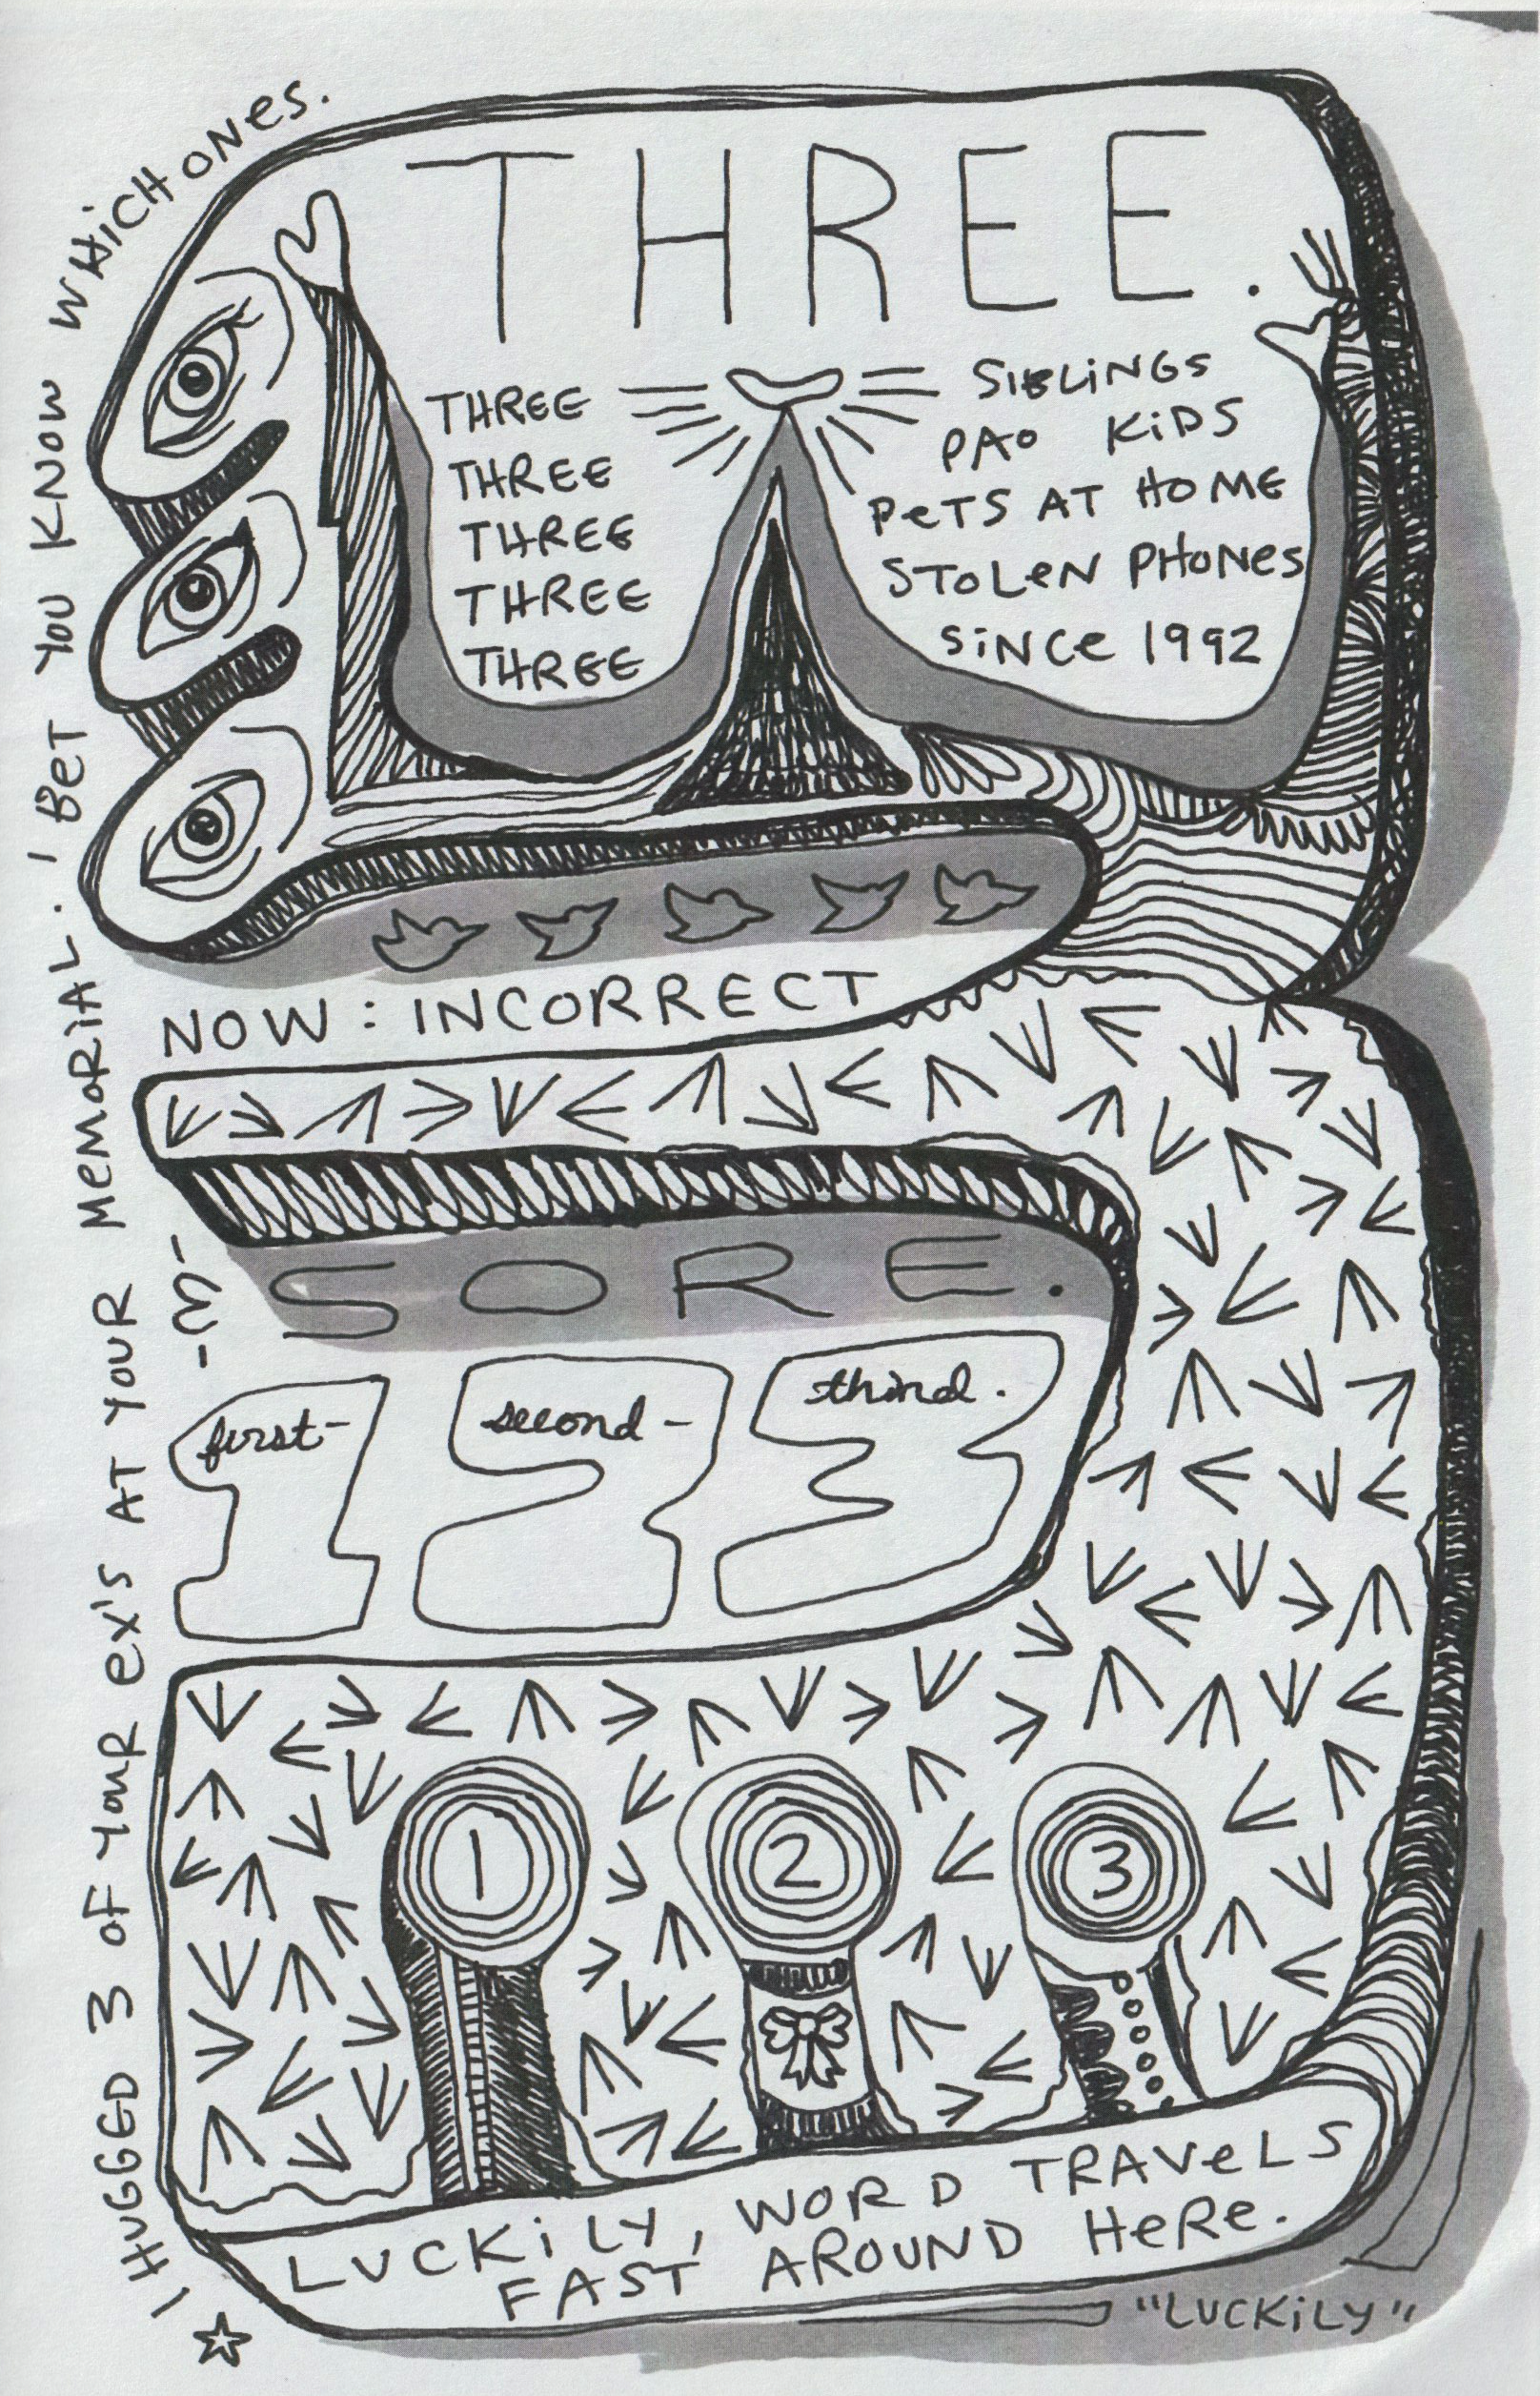 THREE.
THREE SIBLINGS
THREE PAO KIDS
THREE PETS AT HOME
THREE STOLEN PHONES
THREE SINCE 1992
NOW: INCORRECT
SORE.
first-
second-
third.
1 2 3
1
2
3
LUCKILY, WORD TRAVELS
FAST AROUND HERE.
"LUCKILY"
I HUGGED 3 OF YOUR EX'S AT YOUR MEMORIAL. I BET YOU KNOW WHICH ONES.
-3-